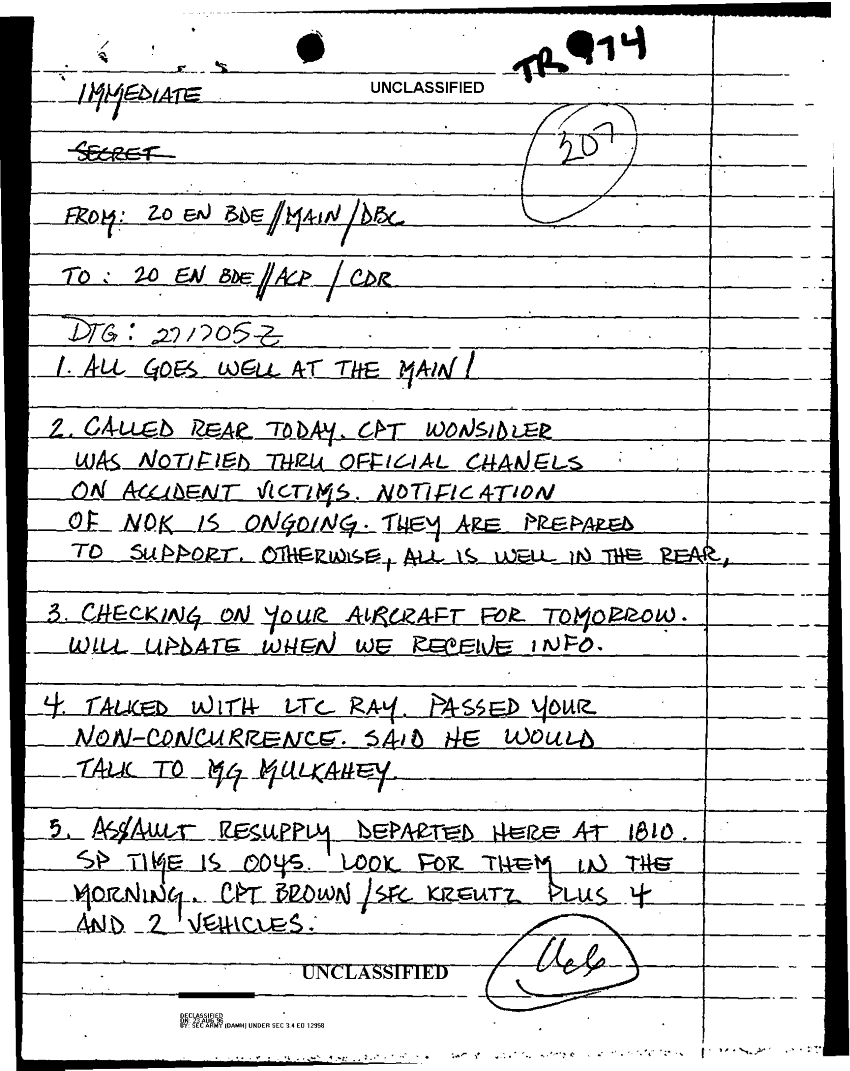 TR 974
IMMEDIATE UNCLASSIFIED
SECRET
207
FROM: 20 EN BDE//MAIN/DBC
TO: 20 EN BDE//ACP/CDR
DTG: 271705Z
1. ALL GOES WELL AT THE MAIN!
2. CALLED REAR TODAY. CPT WONSIDLER
WAS NOTIFIED THRU OFFICIAL CHANELS
ON ACCIDENT VICTIMS. NOTIFICATION
OF NOK IS ONGOING. THEY ARE PREPARED
TO SUPPORT. OTHERWISE, ALL IS WELL IN THE REAR,
3. CHECKING ON YOUR AIRCRAFT FOR TOMORROW.
WILL UPDATE WHEN WE RECEIVE INFO.
4. TALKED WITH LTC RAY. PASSED YOUR
NON-CONCURRENCE. SAID HE WOULD
TALK TO MG MULKAHEY.
5. ASSAULT RESUPPLY DEPARTED HERE AT 1810.
SP TIME IS 0045. LOOK FOR THEM IN THE
MORNING. CPT BROWN/SFC KREUTZ PLUS 4
AND 2 VEHICLES.
UNCLASSIFIED
DECLASSIFIED
ON: 23 AUG 96
BY: SEC ARMY (DAMH) UNDER SEC 3.4 EO 12958